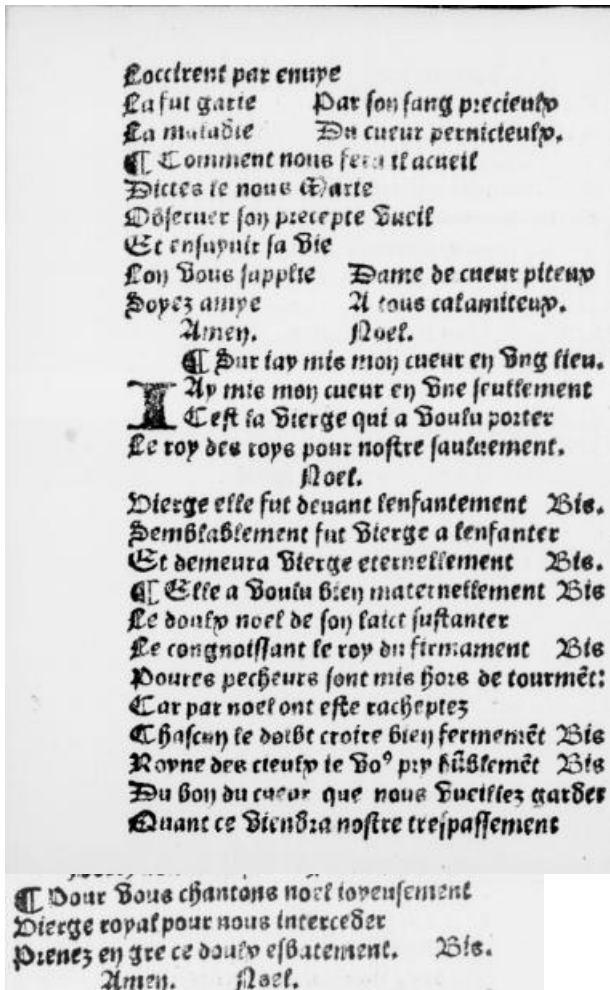 Loccirent par enuye
La fut garie Par son sang precieulx
La maladie Du cueur pernicieulx.
¶ Comment nous fera il acueil
Dictes le nous Marie
Obseruer son precepte vueil
Et ensuyuir sa vie
Lon vous supplie Dame de cueur piteux
Soyez amye A tous calamiteux.
Amen. Noel.
¶ Sur iay mis mon cueur en vng lieu.
IAy mis mon cueur en vne seullement
Cest la vierge qui a voulu porter
Le roy des roys pour nostre sauluement.
Noel.
Vierge elle fut deuant lenfantement Bis.
Semblablement fut vierge a lenfanter
Et demeura vierge eternellement Bis.
¶ Elle a voulu bien maternellement Bis
Le doulx noel de son laict sustanter
Le congnoissant le roy du firmament Bis
Poures pecheurs sont mis hors de tourmēt:
Car par noel ont este racheptez
Chascun le doibt croire bien fermemēt Bis
Royne des cieulx ie voꝰ pry hūblemēt Bis
Du bon du cueur que nous vueillez garder
Quant ce viendra nostre trespassement
¶ Pour vous chantons noel ioyeusement
Vierge royal pour nous interceder
Prenez en gre ce doulx esbatement. Bis.
Amen. Noel.